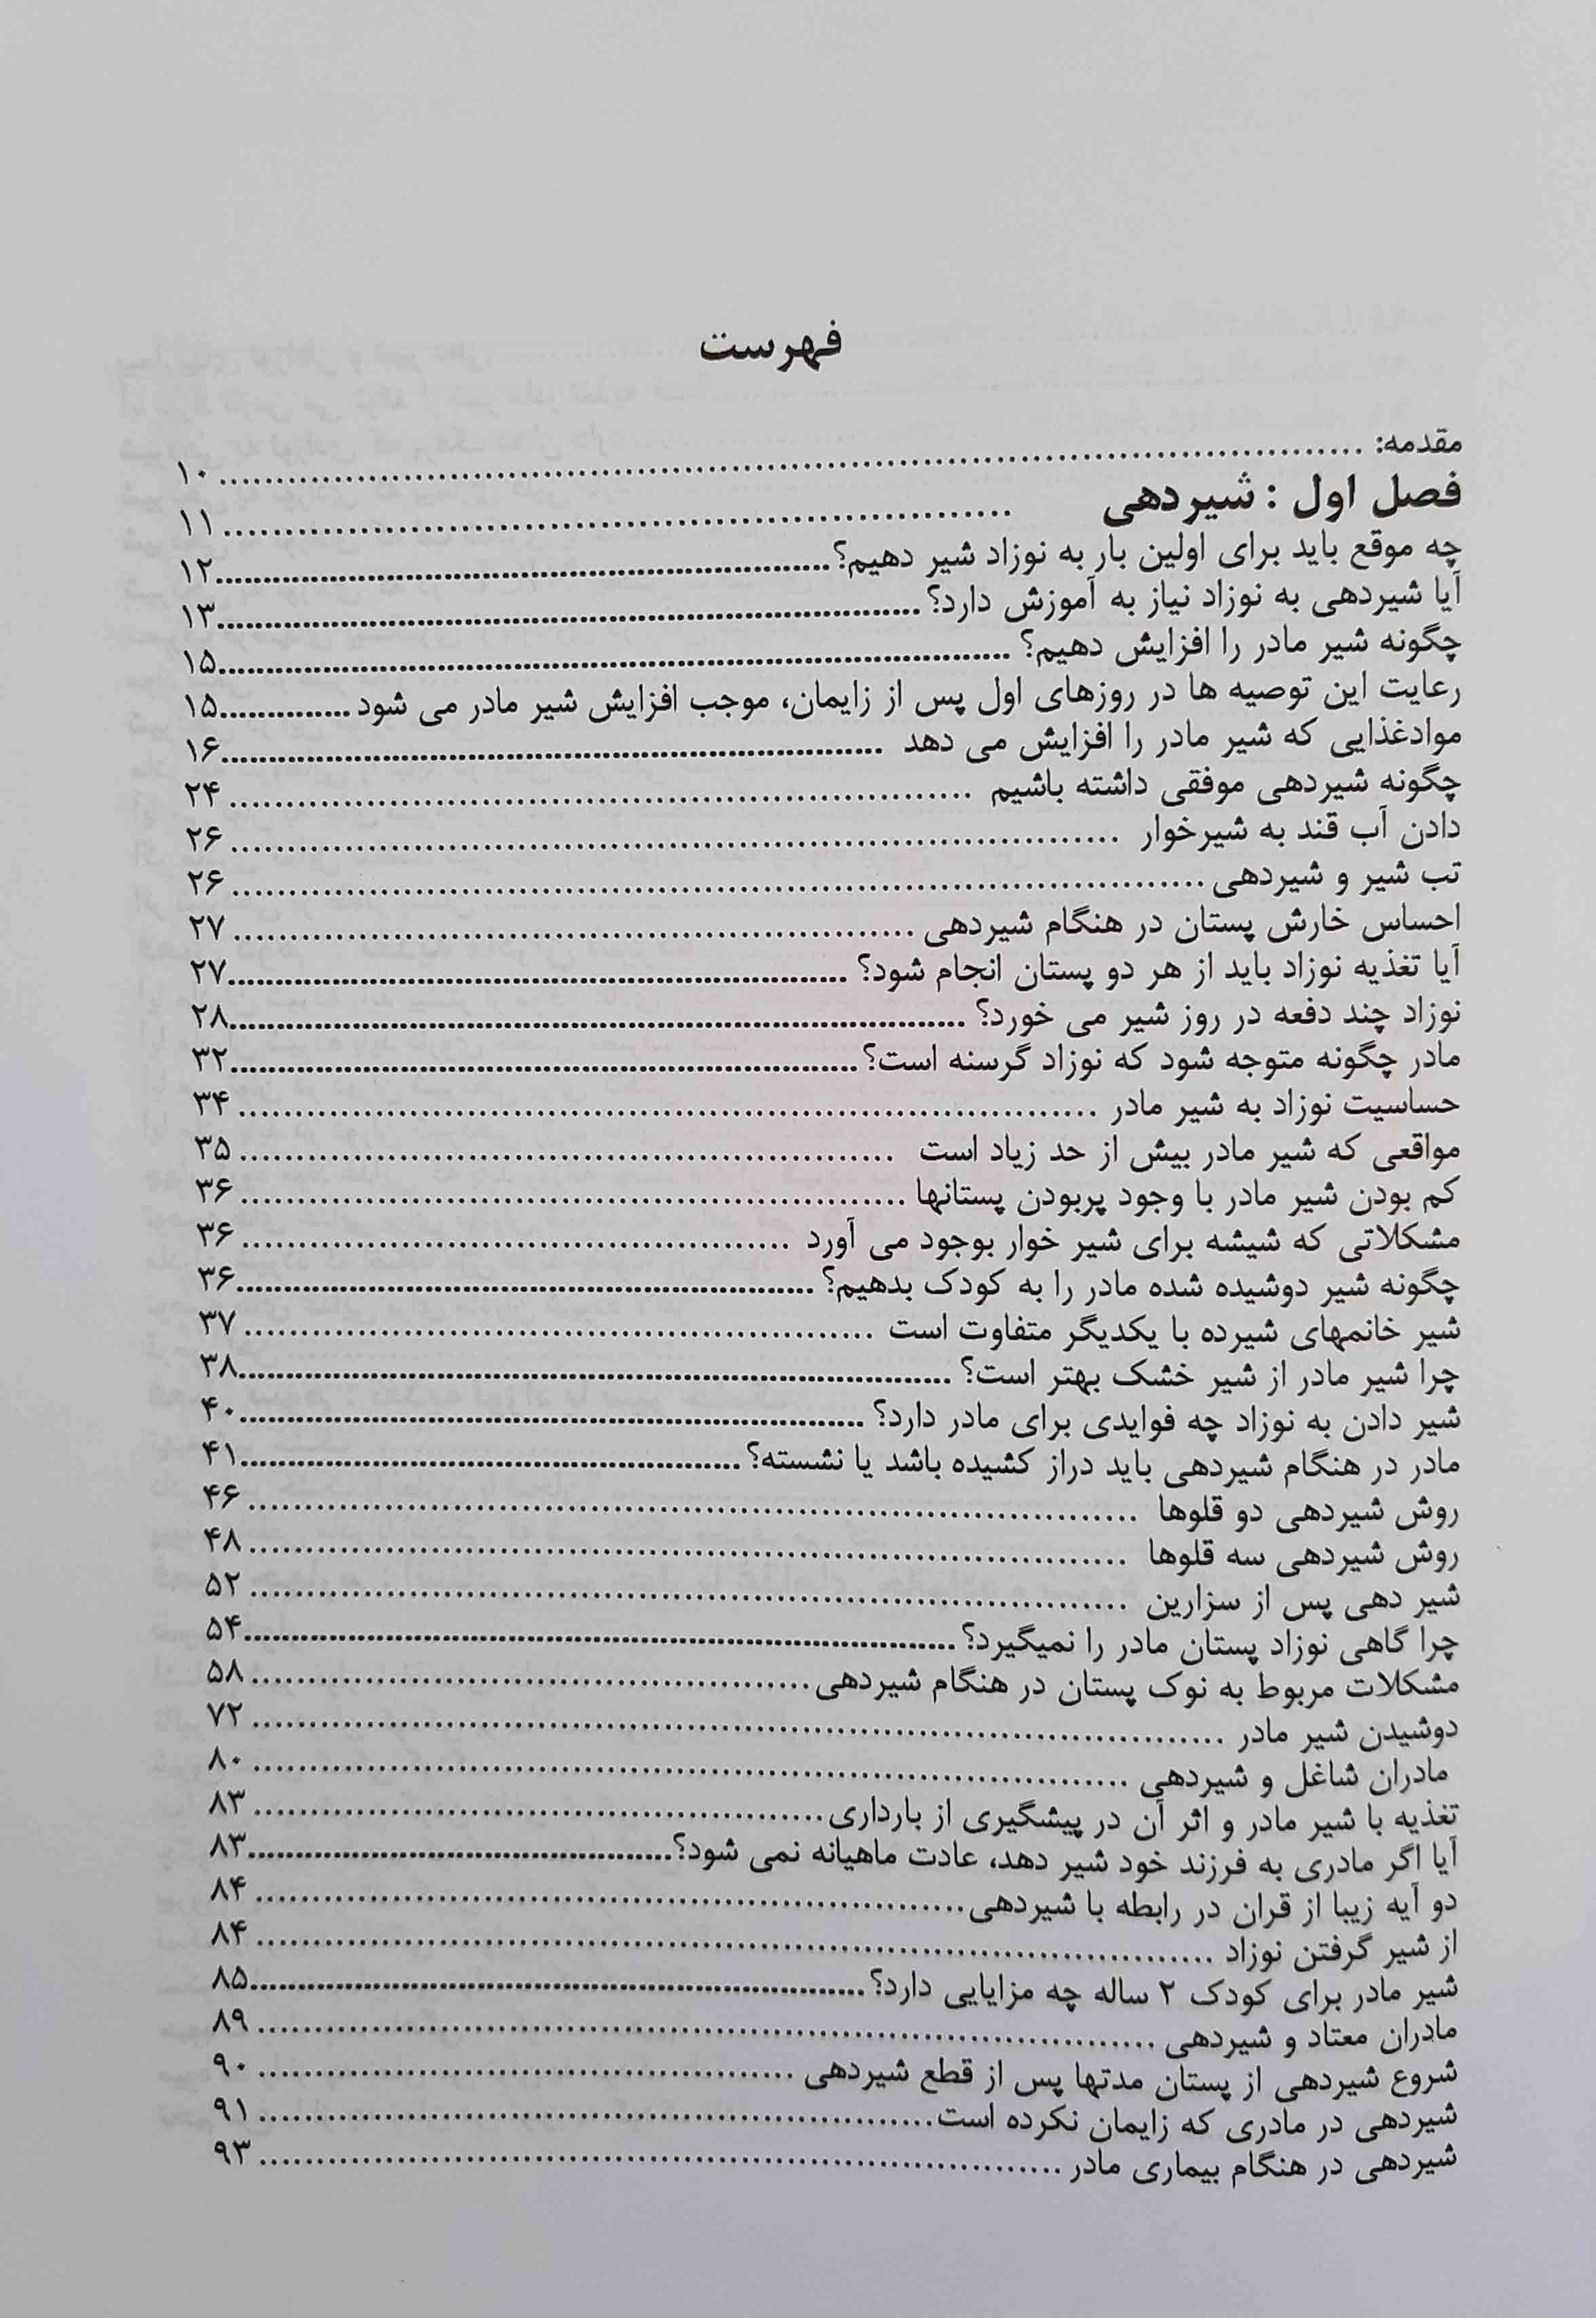 فهرست
مقدمه: ........................................ ۱۰
فصل اول : شیردهی ........................................ ۱۱
چه موقع باید برای اولین بار به نوزاد شیر دهیم؟........................................۱۲
آیا شیردهی به نوزاد نیاز به آموزش دارد؟........................................۱۳
چگونه شیر مادر را افزایش دهیم؟ ........................................۱۵
رعایت این توصیه ها در روزهای اول پس از زایمان، موجب افزایش شیر مادر می شود ..............۱۵
موادغذایی که شیر مادر را افزایش می دهد ........................................۱۶
چگونه شیردهی موفقی داشته باشیم ........................................ ۲۴
دادن آب قند به شیرخوار ........................................ ۲۶
تب شیر و شیردهی ........................................ ۲۶
احساس خارش پستان در هنگام شیردهی ........................................ ۲۷
آیا تغذیه نوزاد باید از هر دو پستان انجام شود؟ ........................................۲۷
نوزاد چند دفعه در روز شیر می خورد؟ ........................................۲۸
مادر چگونه متوجه شود که نوزاد گرسنه است؟........................................۳۲
حساسیت نوزاد به شیر مادر ........................................ ۳۴
مواقعی که شیر مادر بیش از حد زیاد است ........................................ ۳۵
کم بودن شیر مادر با وجود پربودن پستانها ........................................ ۳۶
مشکلاتی که شیشه برای شیر خوار بوجود می آورد ........................................ ۳۶
چگونه شیر دوشیده شده مادر را به کودک بدهیم؟ ........................................۳۶
شیر خانمهای شیرده با یکدیگر متفاوت است ........................................ ۳۷
چرا شیر مادر از شیر خشک بهتر است؟ ........................................۳۸
شیر دادن به نوزاد چه فوایدی برای مادر دارد؟ ........................................۴۰
مادر در هنگام شیردهی باید دراز کشیده باشد یا نشسته؟ ........................................۴۱
روش شیردهی دو قلوها ........................................ ۴۶
روش شیردهی سه قلوها ........................................ ۴۸
شیر دهی پس از سزارین ........................................ ۵۲
چرا گاهی نوزاد پستان مادر را نمیگیرد؟ ........................................۵۴
مشکلات مربوط به نوک پستان در هنگام شیردهی........................................ ۵۸
دوشیدن شیر مادر ........................................ ۷۲
مادران شاغل و شیردهی ........................................ ۸۰
تغذیه با شیر مادر و اثر آن در پیشگیری از بارداری........................................ ۸۳
آیا اگر مادری به فرزند خود شیر دهد، عادت ماهیانه نمی شود؟........................................۸۳
دو آیه زیبا از قران در رابطه با شیردهی........................................ ۸۴
از شیر گرفتن نوزاد ........................................ ۸۴
شیر مادر برای کودک ۲ ساله چه مزایایی دارد؟ ........................................۸۵
مادران معتاد و شیردهی ........................................ ۸۹
شروع شیردهی از پستان مدتها پس از قطع شیردهی ........................................ ۹۰
شیردهی در مادری که زایمان نکرده است........................................ ۹۱
شیردهی در هنگام بیماری مادر ........................................ ۹۳